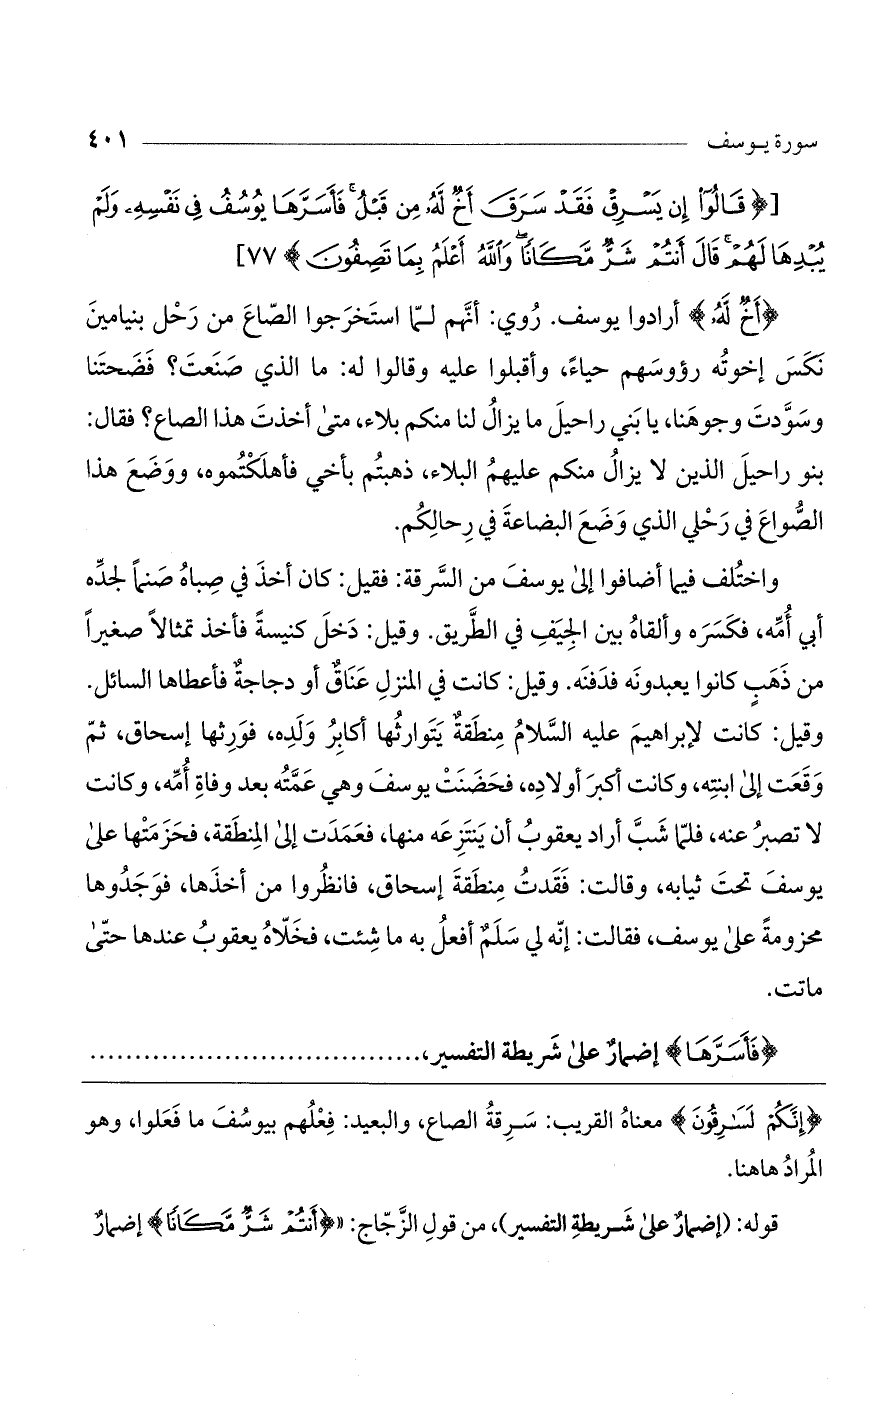 سورة يوسف ٤٠١
[﴿ قَالُوٓا۟ إِن يَسْرِقْ فَقَدْ سَرَقَ أَخٌ لَّهُۥ مِن قَبْلُ ۚ فَأَسَرَّهَا يُوسُفُ فِى نَفْسِهِۦ وَلَمْ
يُبْدِهَا لَهُمْ ۚ قَالَ أَنتُمْ شَرٌّ مَّكَانًا ۖ وَٱللَّهُ أَعْلَمُ بِمَا تَصِفُونَ ﴾ ٧٧]
﴿أَخٌ لَّهُۥ﴾ أرادوا يوسف. رُوي: أنَّهم لـمّا استَخرَجوا الصّاعَ من رَحْل بنيامينَ
نَكَسَ إخوتُه رؤوسَهم حياءً، وأقبلوا عليه وقالوا له: ما الذي صَنَعتَ؟ فَضَحتَنا
وسَوَّدتَ وجوهَنا، يا بَني راحيلَ ما يزالُ لنا منكم بلاء، متىٰ أخذتَ هذا الصاع؟ فقال:
بنو راحيلَ الذين لا يزالُ منكم عليهمُ البلاء، ذهبتُم بأخي فأهلَكْتُموه، ووَضَعَ هذا
الصُّواعَ في رَحْلي الذي وَضَعَ البضاعةَ في رِحالِكُم.
واختُلف فيما أضافوا إلىٰ يوسفَ من السَّرقة: فقيل: كان أخذَ في صِباهُ صَنماً لجدِّه
أبي أُمِّه، فكَسَرَه وألقاهُ بين الجِيَفِ في الطَّريق. وقيل: دَخلَ كنيسةً فأخذ تمثالاً صغيراً
من ذَهَبٍ كانوا يعبدونَه فدَفنَه. وقيل: كانت في المنزلِ عَنَاقٌ أو دجاجةٌ فأعطاها السائل.
وقيل: كانت لإبراهيمَ عليه السَّلامُ مِنطَقةٌ يَتَوارثُها أكابِرُ وَلَدِه، فوَرِثها إسحاق، ثمّ
وَقَعَت إلىٰ ابنتِه، وكانت أكبرَ أولادِه، فحَضَنَتْ يوسفَ وهي عَمَّتُه بعد وفاةِ أُمِّه، وكانت
لا تصبرُ عنه، فلمّا شَبَّ أراد يعقوبُ أن يَنتَزِعَه منها، فعَمَدَت إلىٰ المِنطَقة، فحَزَمَتْها علىٰ
يوسفَ تحتَ ثيابه، وقالت: فَقَدتُ مِنطَقةَ إسحاق، فانظُروا من أخذَها، فوَجَدُوها
محزومةً علىٰ يوسف، فقالت: إنّه لي سَلَمٌ أفعلُ به ما شِئت، فخَلّاهُ يعقوبُ عندها حتّىٰ
ماتت.
﴿فَأَسَرَّهَا﴾ إضمارٌ علىٰ شَريطة التفسير،.....................................
﴿إِنَّكُمْ لَسَٰرِقُونَ﴾ معناهُ القريب: سَرِقةُ الصاع، والبعيد: فِعْلُهم بيوسُفَ ما فَعَلوا، وهو
المُرادُ هاهنا.
قوله: (إضمارٌ علىٰ شَريطةِ التفسير)، من قولِ الزَّجّاج: «﴿أَنتُمْ شَرٌّ مَّكَانًا﴾ إضمارٌ